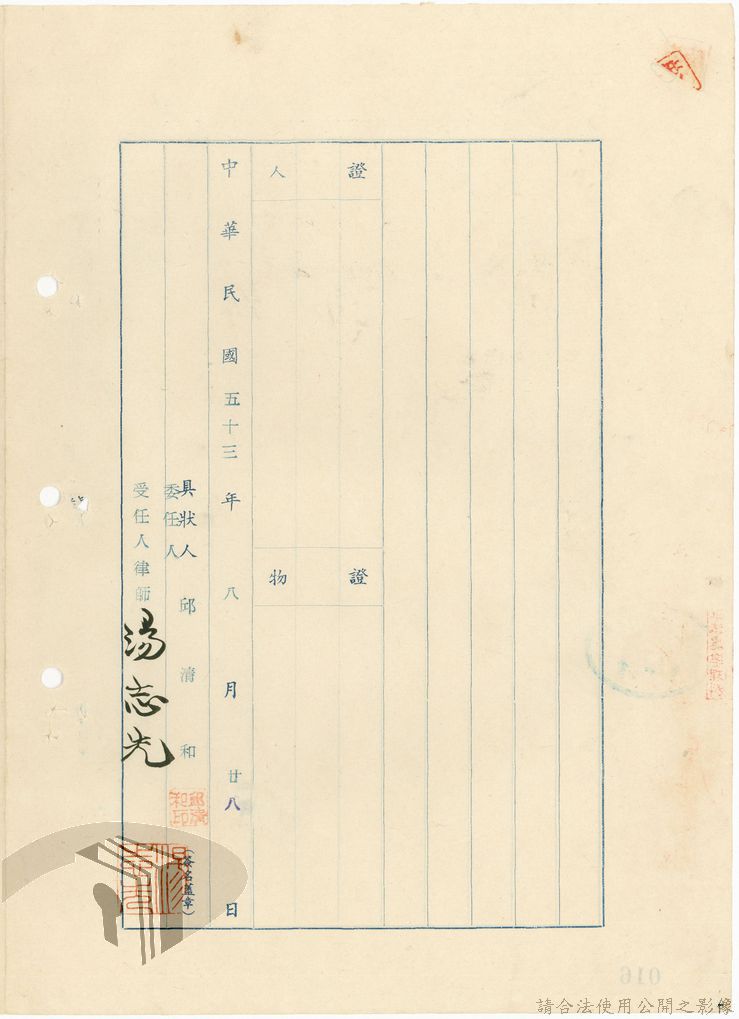 證人
證物
中華民國五十三年八月廿八日
具狀人
委任人 邱清和
邱清和印
受任人律師 湯志先
(簽名蓋章)
016
請合法使用公開之影像